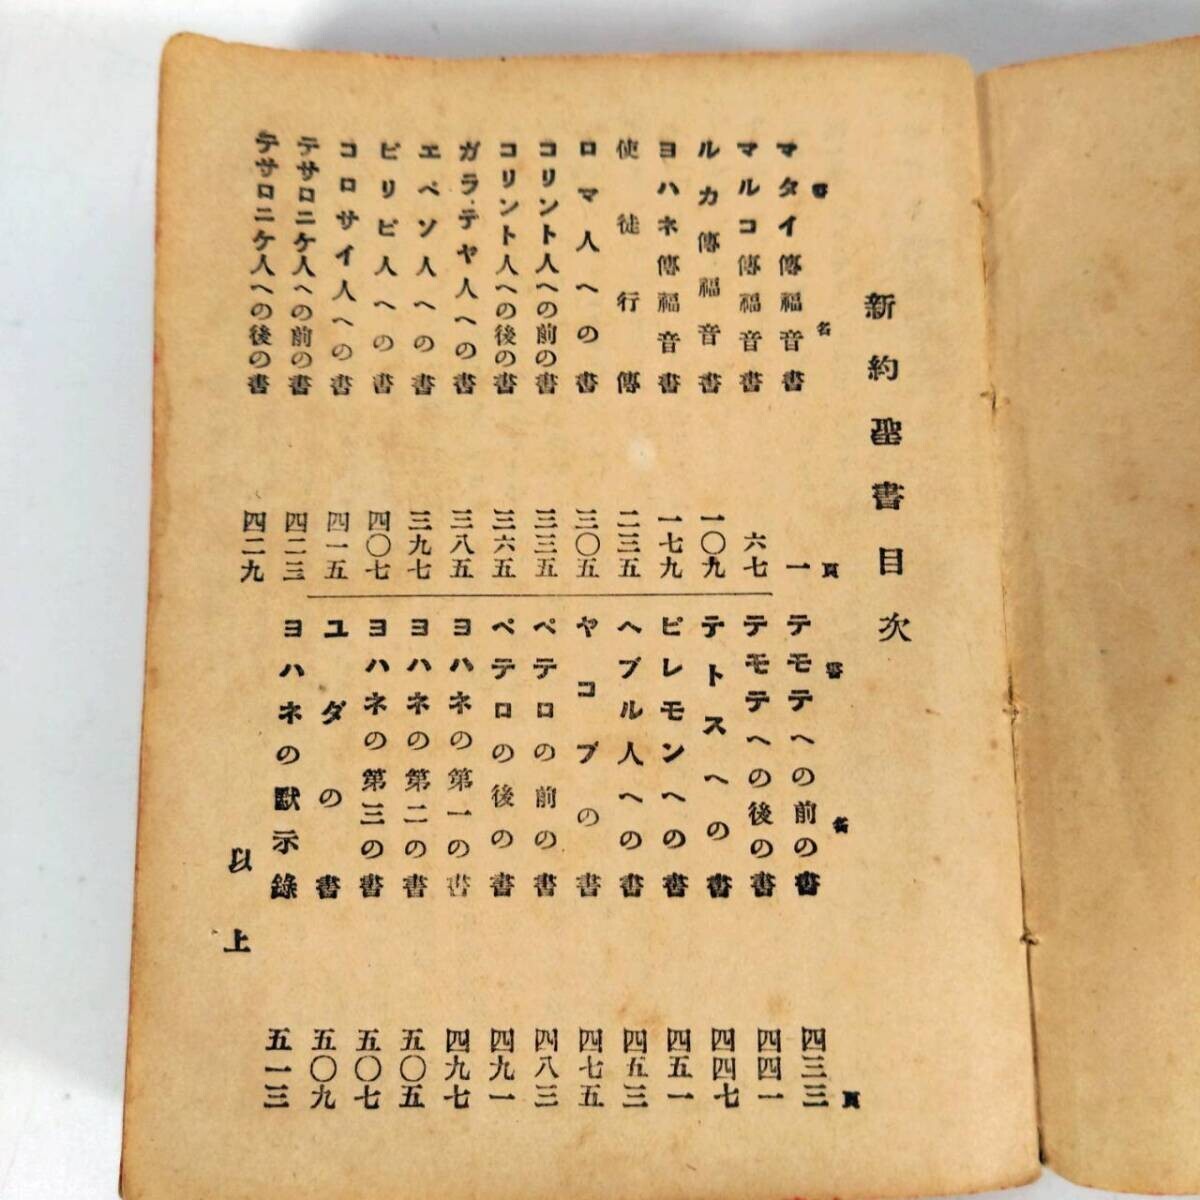 新約聖書目次
書名 頁
マタイ傳福音書 一
マルコ傳福音書 六七
ルカ傳福音書 一〇九
ヨハネ傳福音書 一七九
使徒行傳 二三五
ロマ人への書 三〇五
コリント人への前の書 三三五
コリント人への後の書 三六五
ガラテヤ人への書 三八五
エペソ人への書 三九七
ピリピ人への書 四〇七
コロサイ人への書 四一五
テサロニケ人への前の書 四二三
テサロニケ人への後の書 四二九
書名 頁
テモテへの前の書 四三三
テモテへの後の書 四四一
テトスへの書 四四七
ピレモンへの書 四五一
ヘブル人への書 四五三
ヤコブの書 四七五
ペテロの前の書 四八三
ペテロの後の書 四九一
ヨハネの第一の書 四九七
ヨハネの第二の書 五〇五
ヨハネの第三の書 五〇七
ユダの書 五〇九
ヨハネの默示錄 五一三
以上